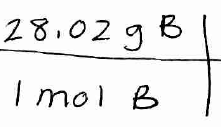 28.02 g B
1 mol B